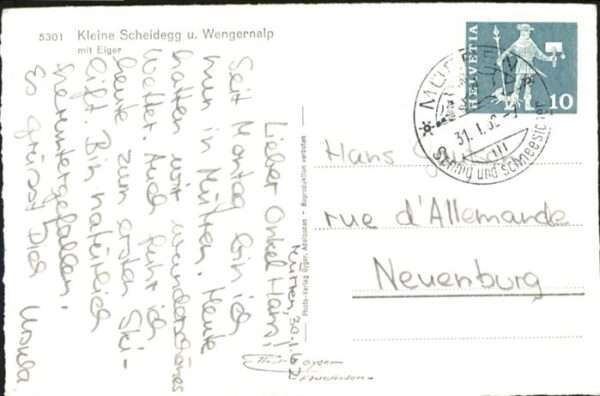 5301 Kleine Scheidegg u. Wengernalp
mit Eiger
HELVETIA
10
MÜRREN
31.1.62
Sonnig und schneesicher
Mürren, 30.1.62
Lieber Onkel Hans!
Seit Montag bin ich
nun in Mürren. Heute
hatten wir wunderschönes
Wetter. Auch fuhr ich
heute zum ersten Ski-
lift. Bin natürlich
heruntergefallen.
Es grüsst Dich Ursula.
Photo-Verlag Gyger, Adelboden - Reproduktion verboten
Hans
rue d'Allemande
Neuenburg
Gyger
Adelboden